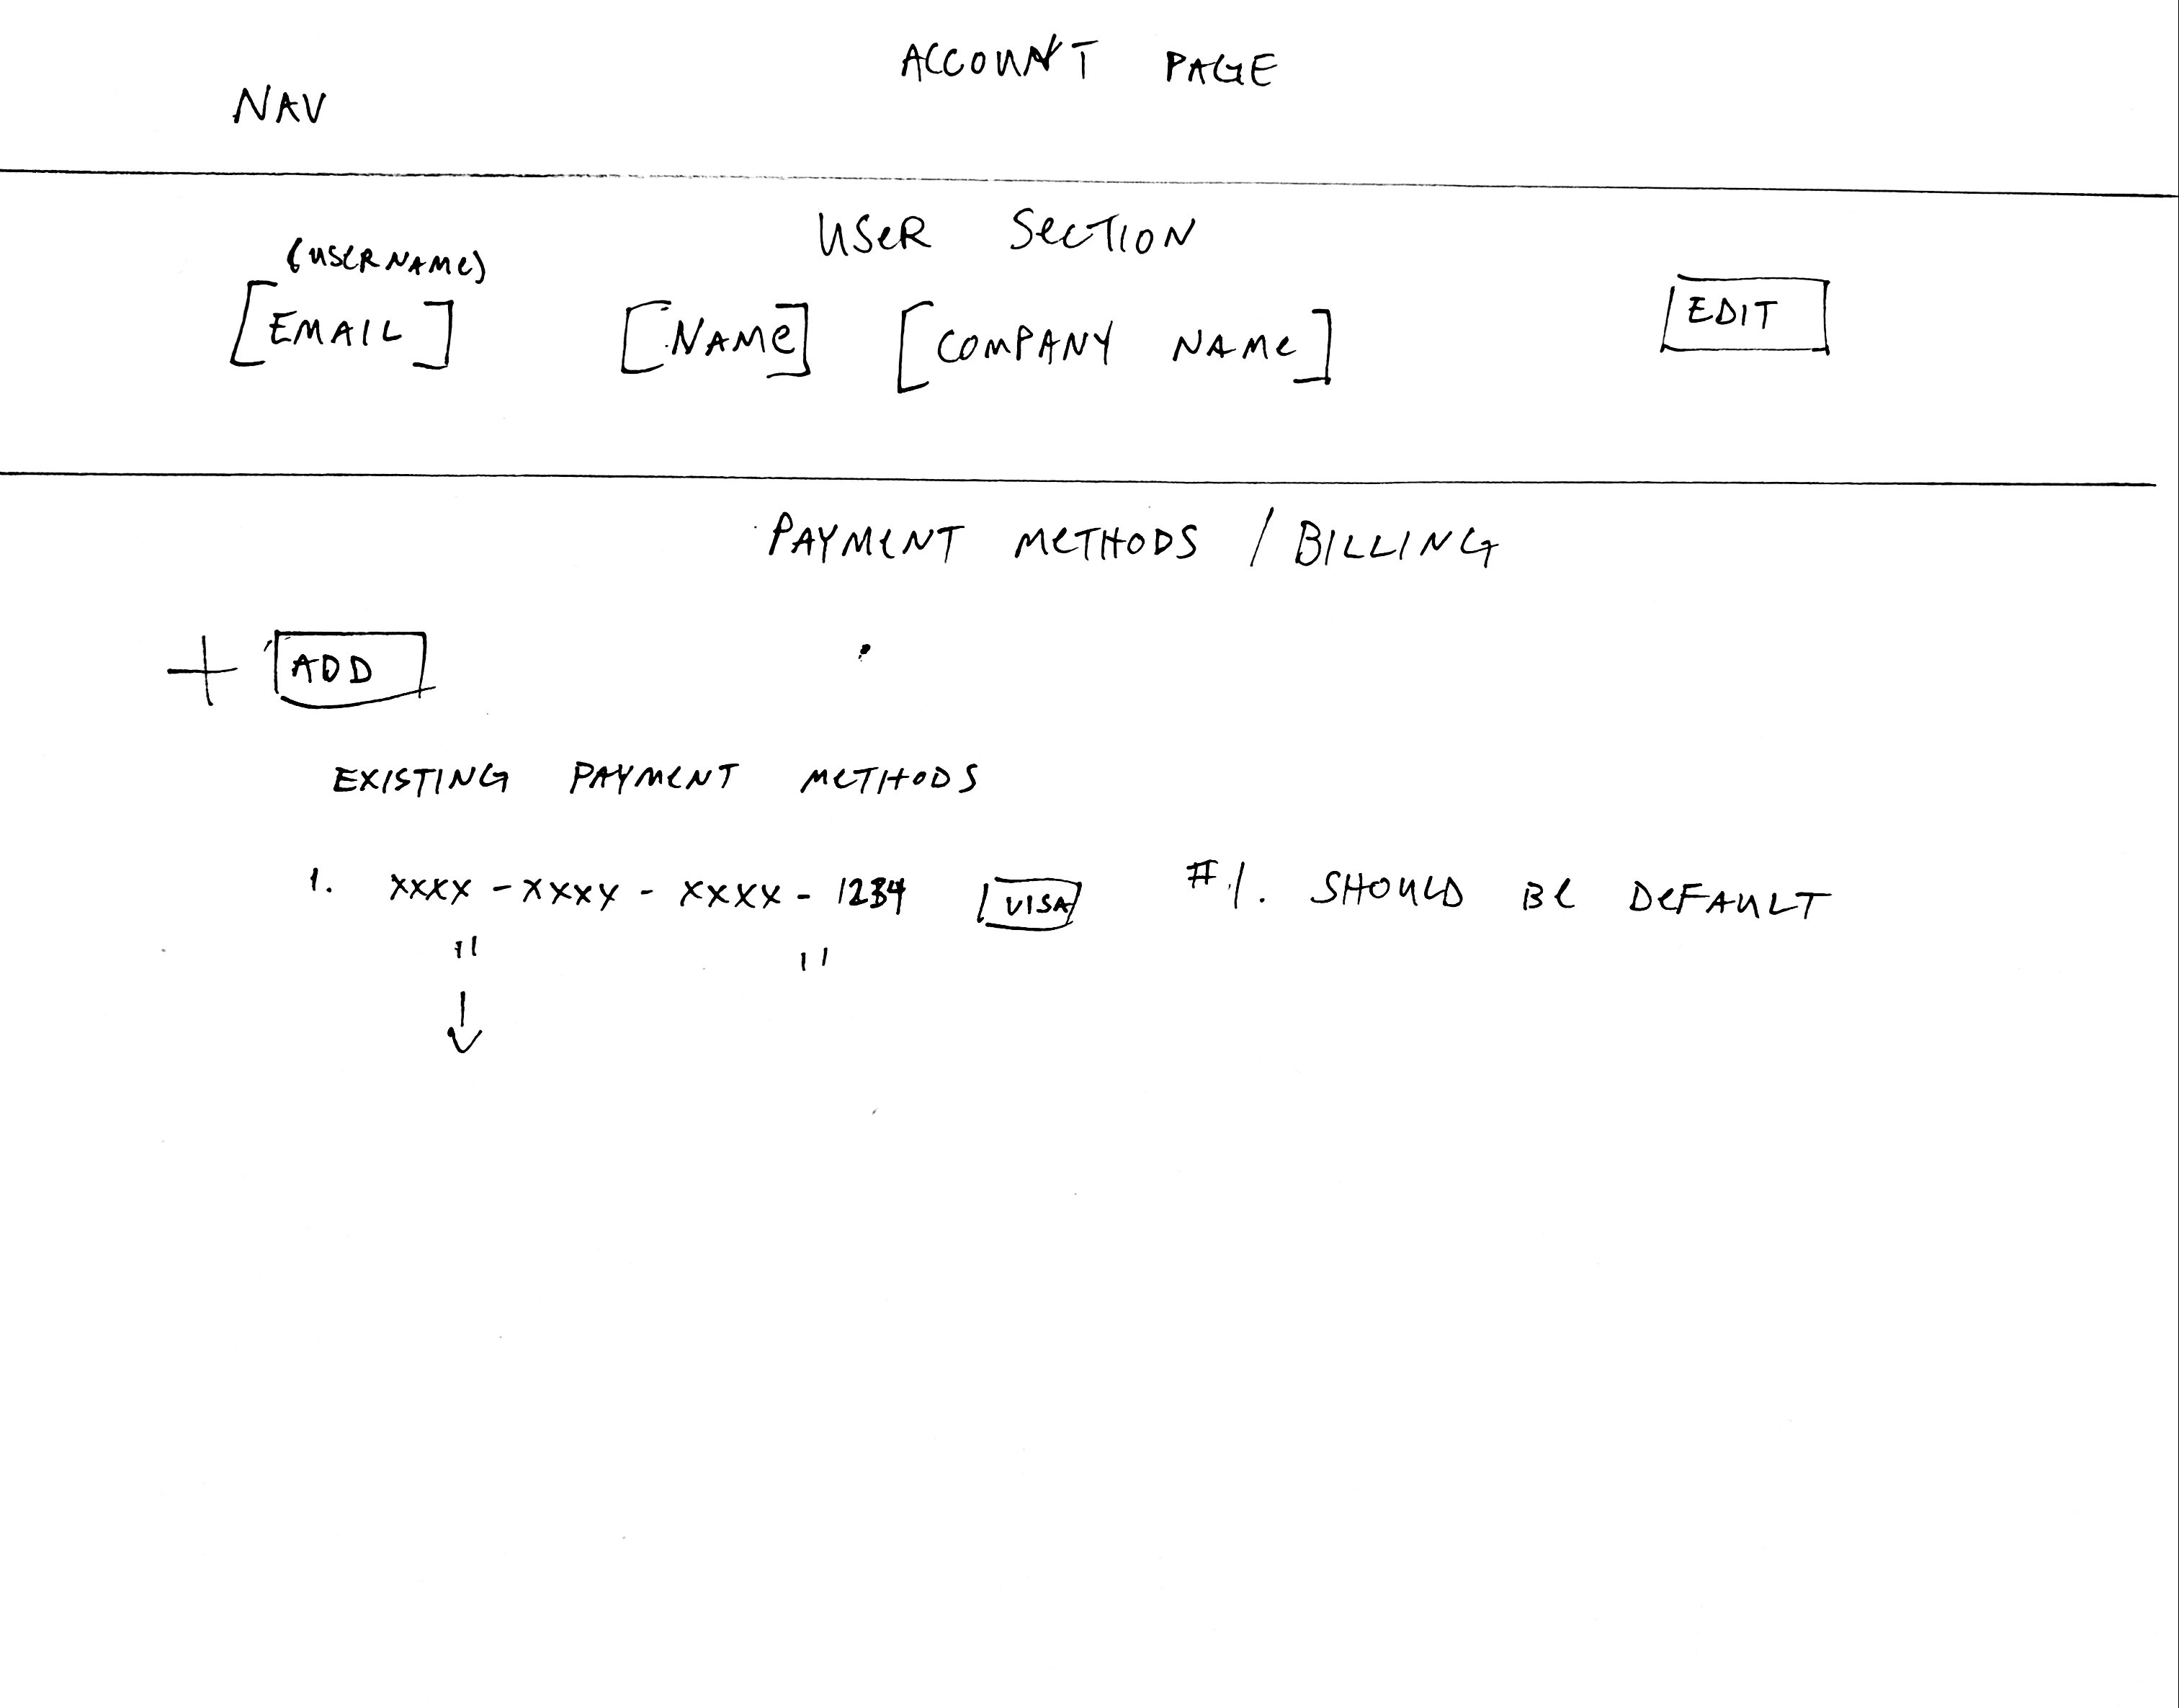 ACCOUNT PAGE
NAV
USER SECTION
(USERNAME)
[EMAIL] [NAME] [COMPANY NAME] EDIT
PAYMENT METHODS / BILLING
+ ADD
EXISTING PAYMENT METHODS
1. XXXX - XXXX - XXXX - 1234 VISA #1. SHOULD BE DEFAULT
" "
↓